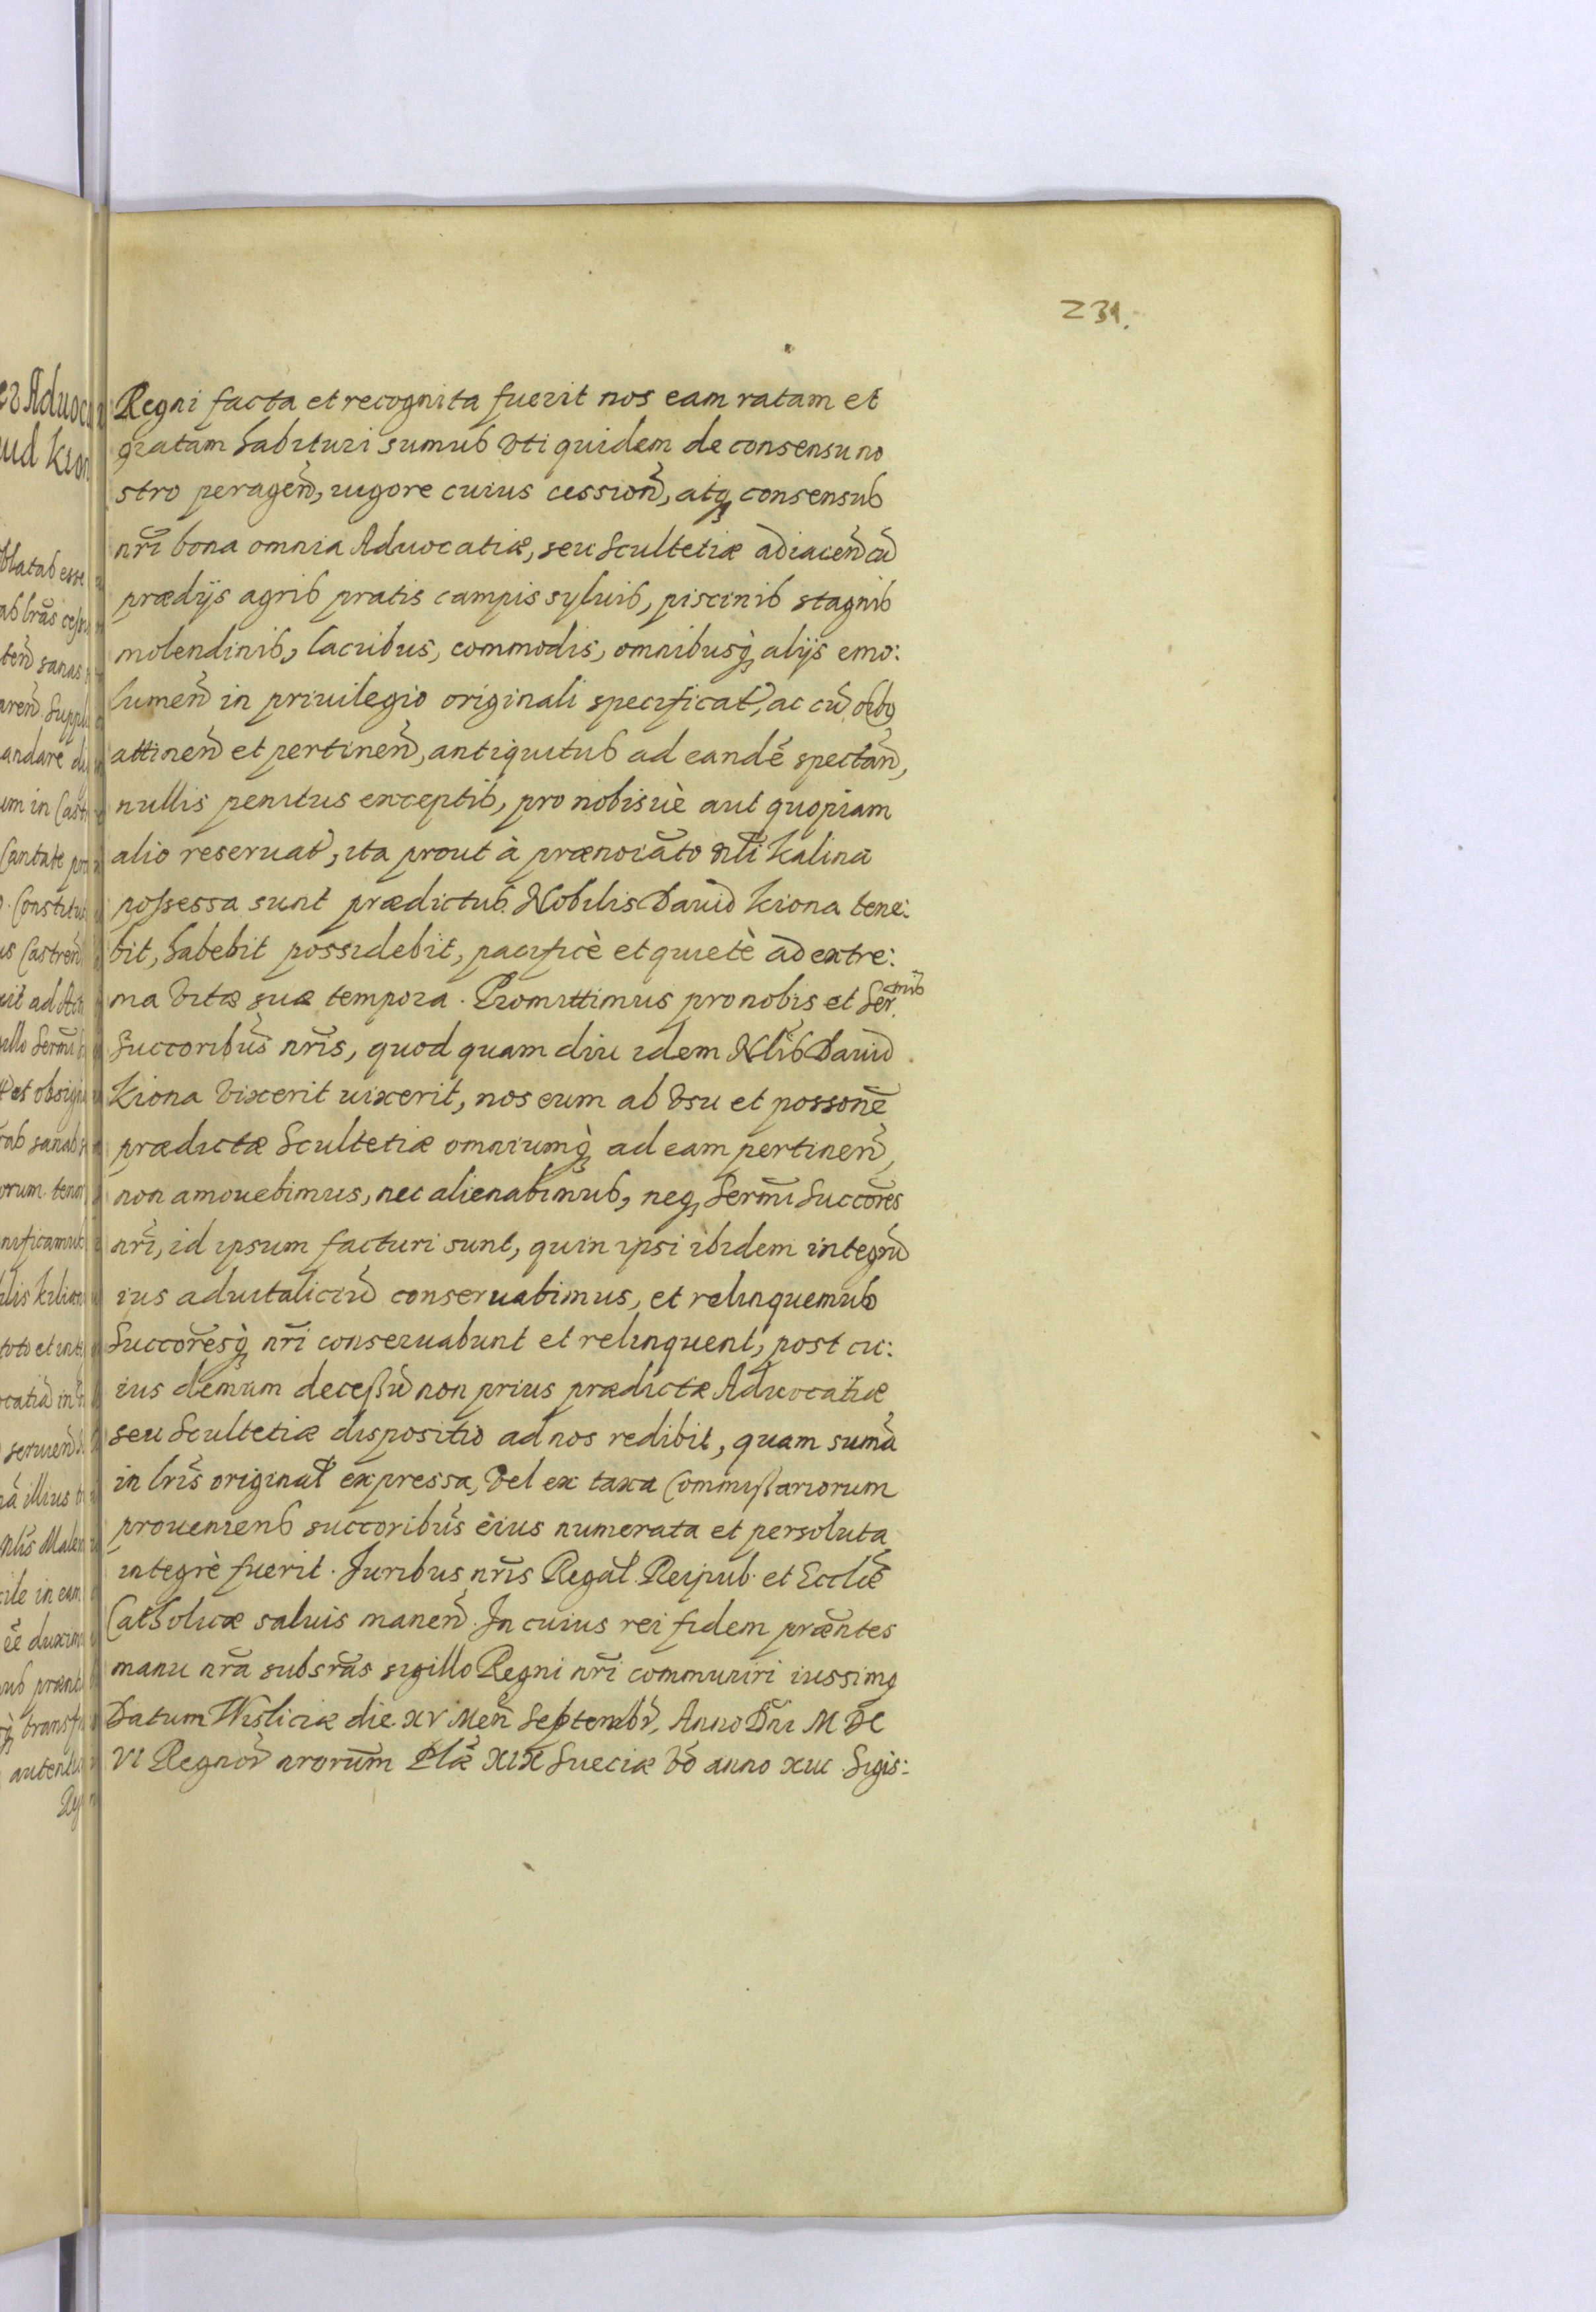 231.
Regni facta et recognita fuerit nos eam ratam et
gratam habituri sumus vti quidem de consensu no
stro peragen̄, uigore cuius cession̄, atq consensus
nr̄i bona omnia Aduocatiæ, seu Scultetiæ adiacen̄ cū
prædijs agris pratis campis syluis, piscinis stagnis
molendinis, lacubus, commodis, omnibusq̀ alijs emo:
lumen̄ in priuilegio originali specificat, ac cū oībq
attinen̄ et pertinen̄, antiquitus ad eandē spectan̄,
nullis penitus exceptis, pro nobisuè aut quopiam
alio reseruat, ita prout à prænoīato nl̄i Kalina
possessa sunt prædictus Nobilis Dauid Kiona tene:
bit, habebit possidebit, pacificè et quietè ad extre:
ma vitæ suæ tempora. Promittimus pro nobis et Ser.mis
Succoribūs nr̄is, quod quam diu idem Nlīs Dauid
Kiona vixerit uixerit, nos eum ab vsu et possonē
prædictæ Scultetiæ omniumq̀ ad eam pertinen̄,
non amouebimus, nec alienabimus, neq Serm̄i Succōres
nr̄i, id ipsum facturi sunt, quin ipsi ibidem integrū
ius aduitaliciū conseruabimus, et relinquemus
Succōresq̀ nr̄i conseruabunt et relinquent, post cu:
ius demum decessū non prius prædictæ Aduocatiæ
seu Scultetiæ dispositio ad nos redibit, quam sumā
in lr̄is original expressa, vel ex taxa Commissariorum
proueniens succoribūs eius numerata et persoluta
integrè fuerit. Juribus nr̄is Regal. Reipub. et Ecclīæ
Catholicæ saluis manen̄. In cuius rei fidem præn̄tes
manu nr̄a subsr̄as sigillo Regni nr̄i communiri iussimq
Datum Wisliciæ die XV Men̄ Septembr̄, Anno Dn̄i M DC
VI Regnor̄ nrorūm Pl̄æ XIX Sueciæ vō anno xiii. Sigis: